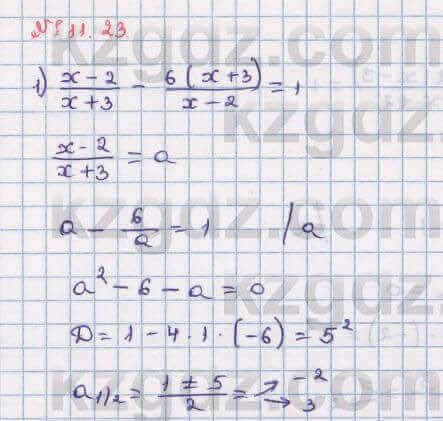 № 11.23
1) (x-2)/(x+3) - 6(x+3)/(x-2) = 1
(x-2)/(x+3) = a
a - 6/a = 1 / a
a² - 6 - a = 0
D = 1 - 4·1·(-6) = 5²
a1/2 = (1 ± 5)/2 = → -2 → 3
kzgdz.com